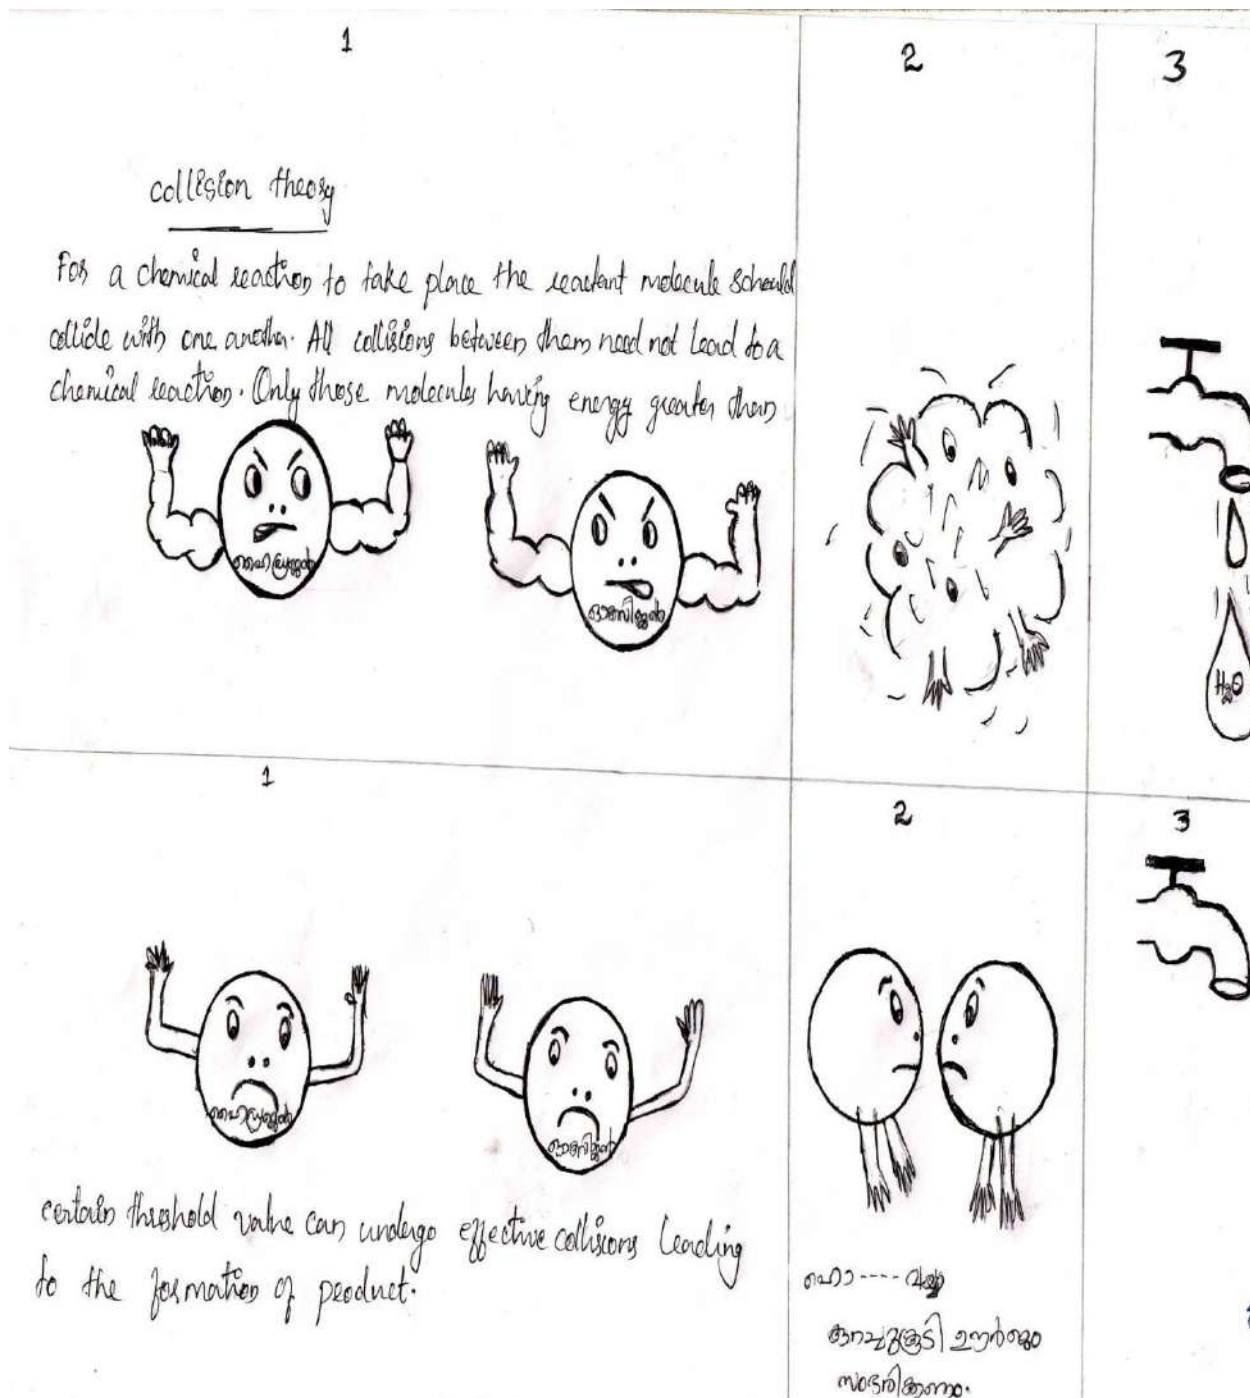 1
2
3
collision theory
For a chemical reaction to take place the reactant molecule schould
collide with one another. All collisions between them need not lead to a
chemical reaction. Only those molecules having energy greater than
ഹൈഡ്രജൻ
ഓക്സിജൻ
H2O
1
2
3
ഹൈഡ്രജൻ
ഓക്സിജൻ
certain threshold value can undergo effective collisions leading
to the formation of product.
ഹൊ----
കുറച്ചുകൂടി ഊർജം
സംഭരിക്കണം.